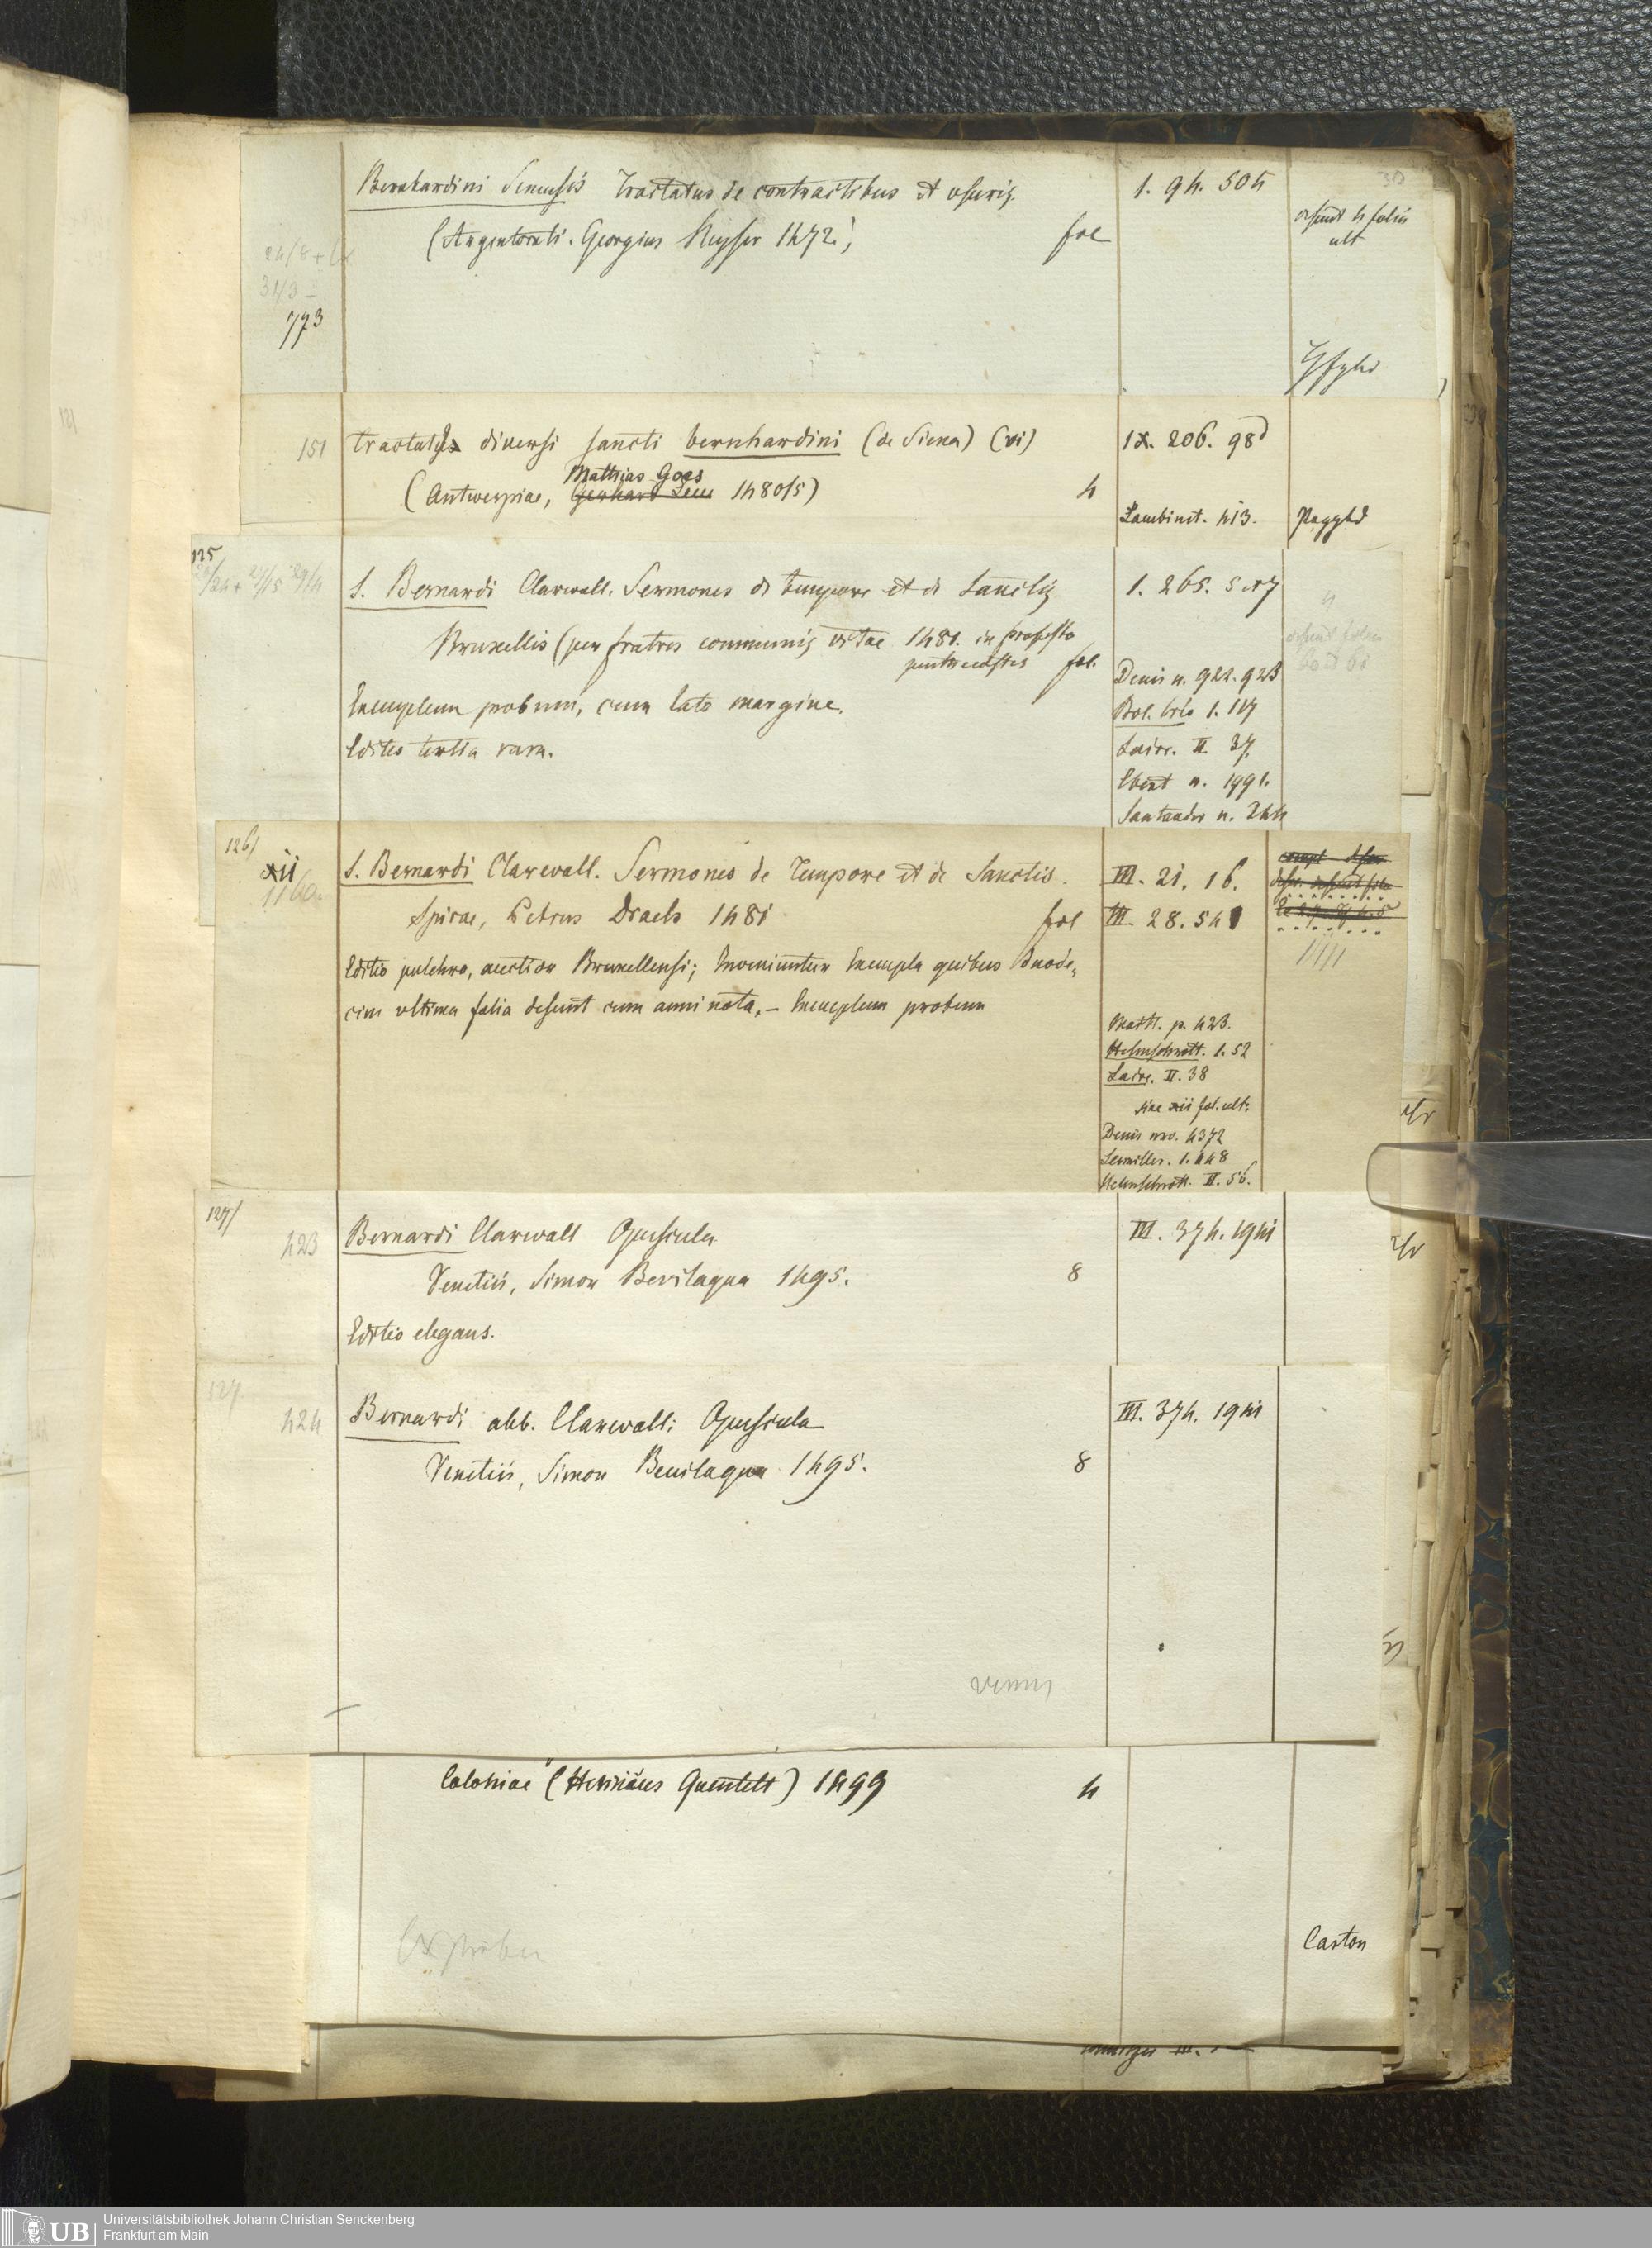 Bernhardini Senensis Tractatus de contractibus et usuris.
1. 94. 504
(Argentorati. Georgius Reyser 1472.)
fol
desunt 4 foliis
ult
773
151
tractatus diuersi sancti bernhardini (de Siena) (vi)
IX. 206. 98d
Matthias Goes
(Antwerpiae, Gerhard Leeu 1480/5)
4
Lambinet. 413.
125
S. Bernardi Clarevall. Sermones de tempore et de Sanctis
1. 265. 5 et 7
Bruxellis (per fratres communis vitae 1481. in profesto
pentecostes
fol.
Denis n. 922. 923
Exemplum probum, cum lato margine.
1. 117
Editio tertia rara.
Laire. II. 37.
Ebert n. 1991.
Santander n. 244
126/
xii
1160.
S. Bernardi Clarevall. Sermones de Tempore et de Sanctis.
III. 21. 16.
Spirae, Petrus Drach 1481
fol
III. 28. 54
Editio pulchra, auctior Bruxellensi; Inveniuntur Exempla quibus Duode-
cim ultima folia desunt cum anni nota. – Exemplum probum
Mait. p. 423.
Helmschrott. 1. 52
Laire. II. 38
sine xii fol. ult.
Denis nro. 4372
Seemiller. 1. 448
Helmschrott. II. 56.
127/
423
Bernardi Clarevall Opuscula
III. 374. 1941
Venetiis, Simon Bevilaqua 1495.
8
Editio elegans.
127
424
Bernardi abb. Clarevall: Opuscula
III. 374. 1941
Venetiis, Simon Beuilaqua 1495.
8
Coloniae (Henricus Quentell) 1499
4
Caxton
UB
Universitätsbibliothek Johann Christian Senckenberg
Frankfurt am Main